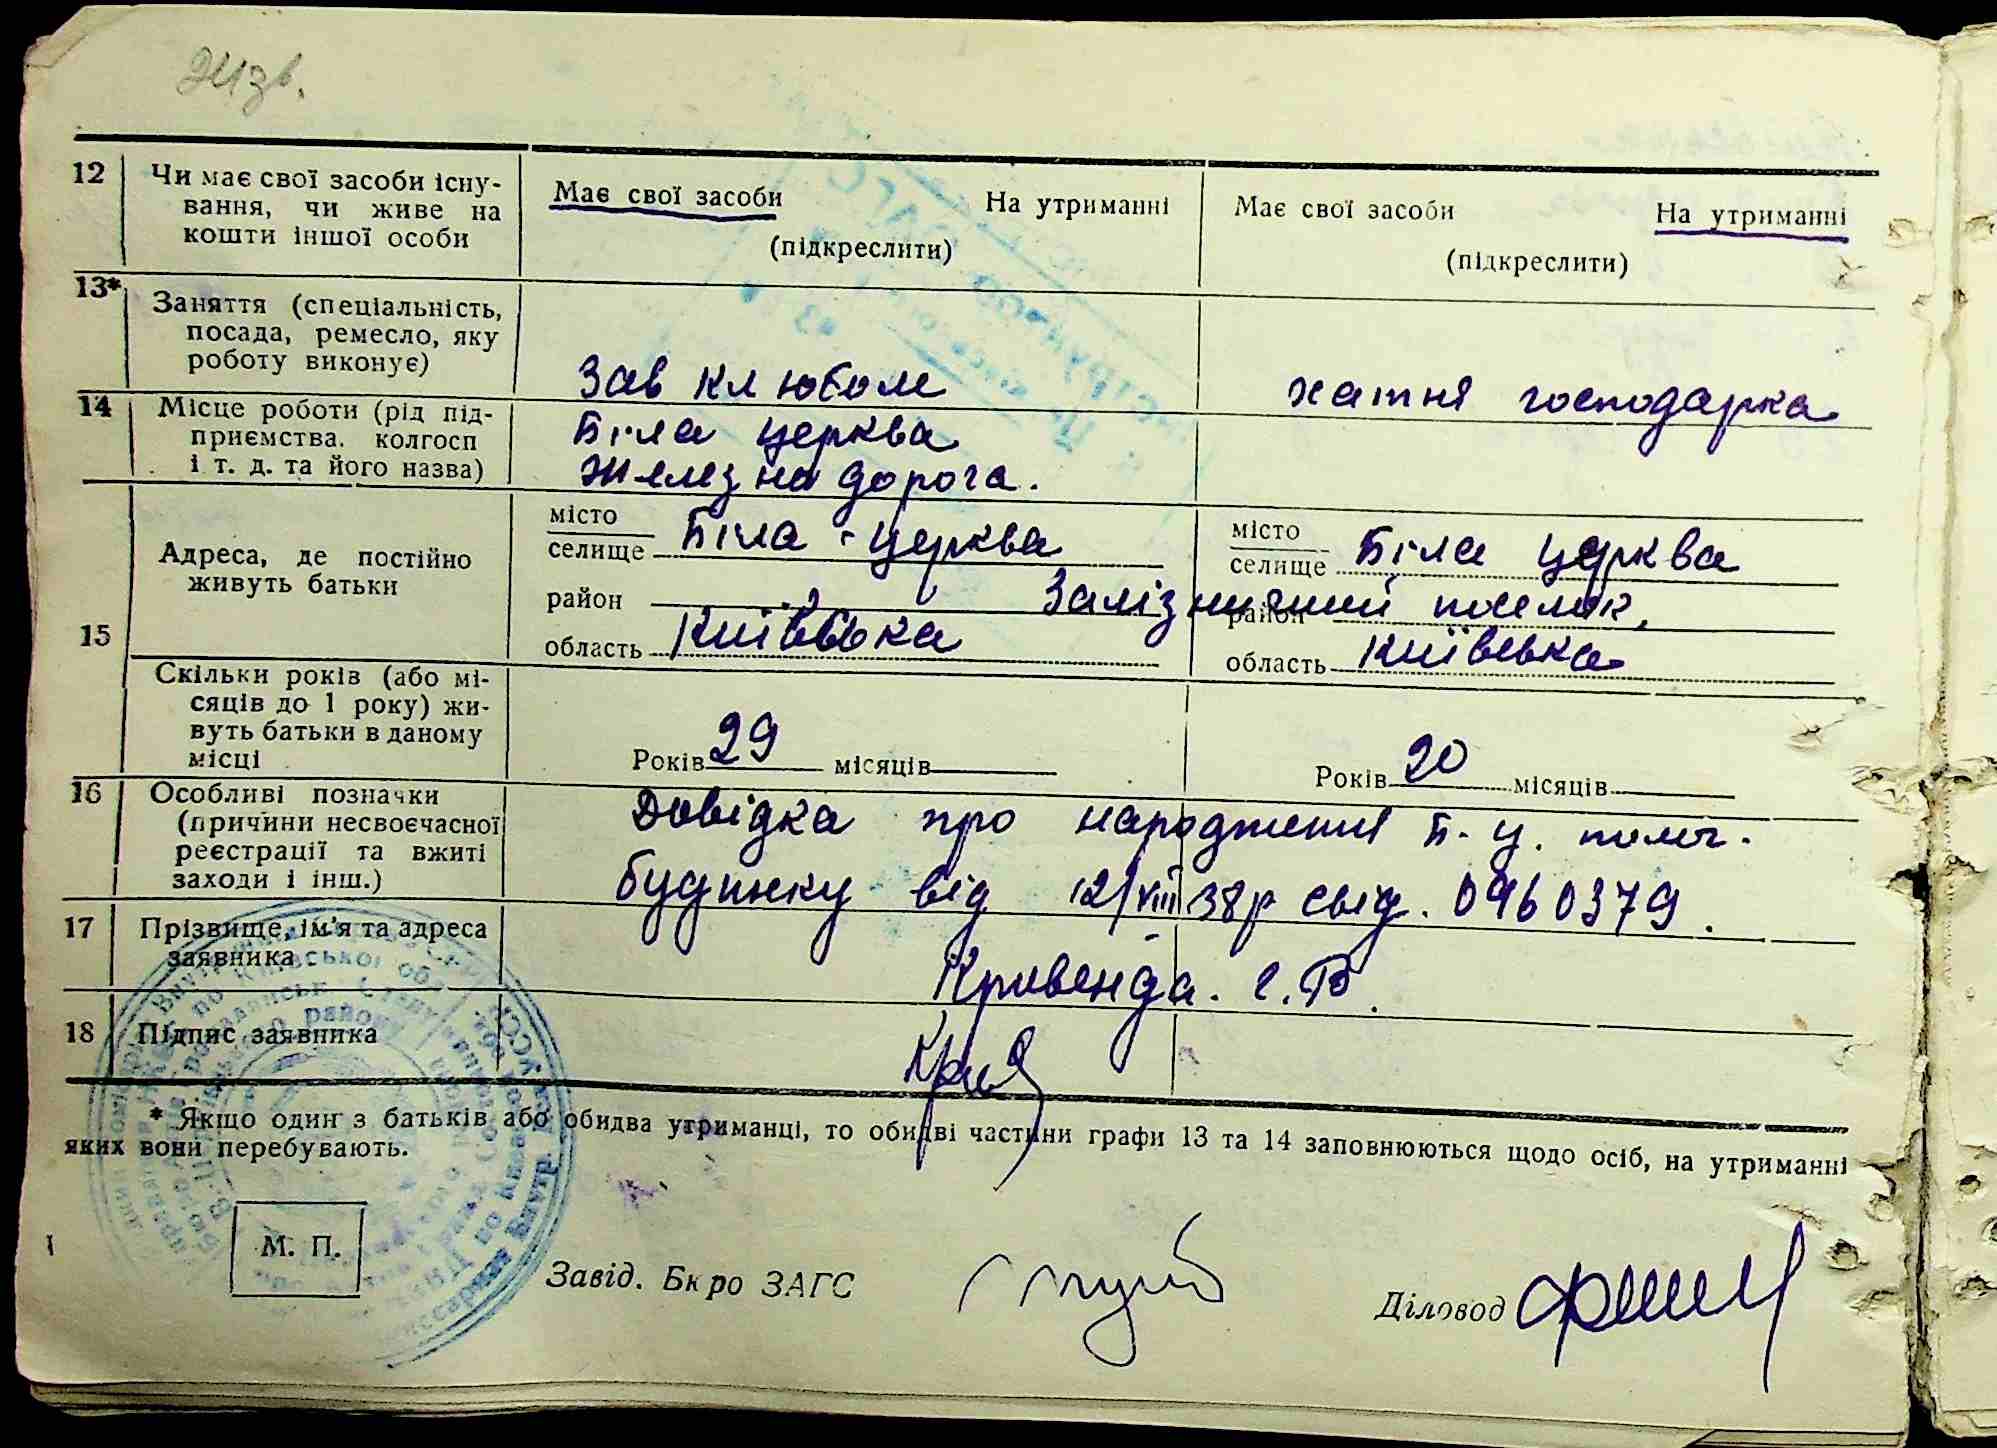 24 зв.
12 Чи має свої засоби існу- Має свої засоби На утриманні Має свої засоби На утриманні
вання, чи живе на
кошти іншої особи (підкреслити) (підкреслити)
13* Заняття (спеціальність,
посада, ремесло, яку
роботу виконує) Зав клюбом хатня господарка
14 Місце роботи (рід під- Біла церква
приємства, колгосп
і т. д. та його назва) Железна дорога.
15 Адреса, де постійно
живуть батьки
місто
селище Біла-церква
район Залізничний поселок,
область Київська
місто
селище Біла церква
район
область Київська
Скільки років (або мі-
сяців до 1 року) жи-
вуть батьки в даному
місці Років 29 місяців Років 20 місяців
16 Особливі позначки Довідка про народження Б-Ц. полог.
(причини несвоєчасної
реєстрації та вжиті будинку від 12/VIII 38р свід. 0960379.
заходи і інш.)
17 Прізвище, ім'я та адреса
заявника Кривенда. Г. В.
18 Підпис заявника
* Якщо один з батьків або обидва утриманці, то обидві частини графи 13 та 14 заповнюються щодо осіб, на утриманні
яких вони перебувають.
М. П.
Завід. Бюро ЗАГС
Діловод